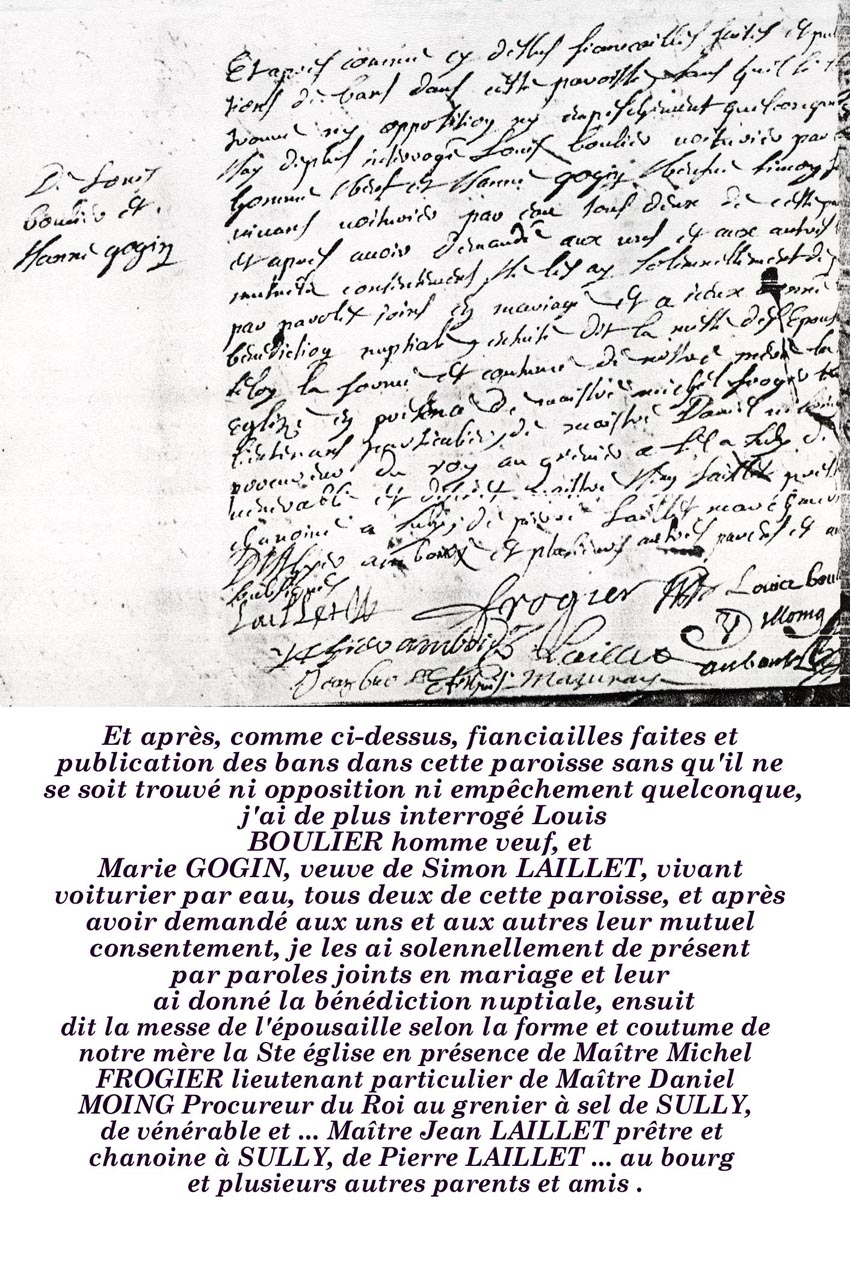 De Louis
boulier et
gogin
Et apres comme cy dessus fiancailles faictes et
bans dans cette paroisse sans quil
ny opposition ny empeschement quelconque
Jay deplus interroge Louis boulier voiturier par
homme et gogin
vivant voiturier par eau tous deux de cette
et apres avoir demandé aux uns et aux autres
mutuel consentement Je les ay solemnellement de
par parolles joint en mariage et a iceux donné
benediction nuptiale ensuite dit la messe des Epous
selon la forme et coutume de nostre mere la
Eglize en presence de maistre michel frogier
lieutenant particulier, de maistre Daniel
procureur du roy au grenier a sel a Sully de
venerable et maistre Laillet
chanoine a Sully, de pierre Laillet
et plusieurs autres parens et
Laillet
frogier
Louise boul
Moing
Laillet
aubault
Mazuray
Et après, comme ci-dessus, fianciailles faites et
publication des bans dans cette paroisse sans qu'il ne
se soit trouvé ni opposition ni empêchement quelconque,
j'ai de plus interrogé Louis
BOULIER homme veuf, et
Marie GOGIN, veuve de Simon LAILLET, vivant
voiturier par eau, tous deux de cette paroisse, et après
avoir demandé aux uns et aux autres leur mutuel
consentement, je les ai solennellement de présent
par paroles joints en mariage et leur
ai donné la bénédiction nuptiale, ensuit
dit la messe de l'épousaille selon la forme et coutume de
notre mère la Ste église en présence de Maître Michel
FROGIER lieutenant particulier de Maître Daniel
MOING Procureur du Roi au grenier à sel de SULLY,
de vénérable et ... Maître Jean LAILLET prêtre et
chanoine à SULLY, de Pierre LAILLET ... au bourg
et plusieurs autres parents et amis .